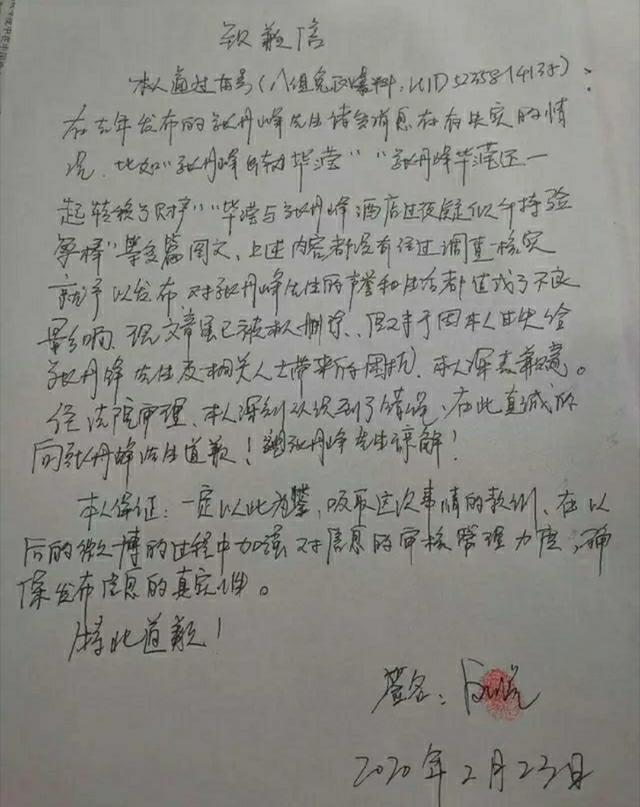 致歉信
本人通过本号(八组兔区爆料,UID 5235814135)
在去年发布的张丹峰先生诸多消息存在失实的情
况,比如"张丹峰 毕滢""张丹峰毕滢还一
起转移了财产""毕滢与张丹峰酒店过夜疑似个持验
孕棒"等多篇图文,上述内容都没有经过调查核实
就予以发布,对张丹峰先生的声誉和生活都造成了不良
影响,现文章虽已被本人删除,但对于因本人过失给
张丹峰先生及相关人士带来的困扰,本人深表歉意。
经法院审理,本人深刻认识到了错误,在此真诚的
向张丹峰先生道歉!望张丹峰先生谅解!
本人保证:一定以此为鉴,吸取这次事情的教训,在以
后的微博的过程中加强对信息的审核管理力度,确
保发布信息的真实性。
特此道歉!
签名:
2020年2月23日